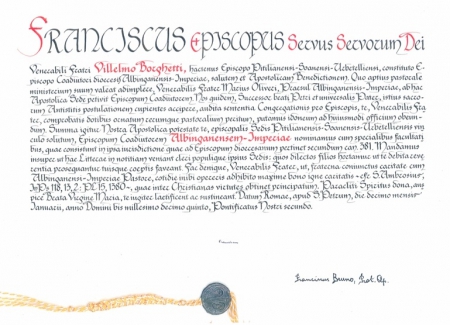 FRANCISCUS EPISCOPUS Servus Servorum Dei
Venerabili Fratri Villelmo Borghetti, hactenus Episcopo Pitilianensi-Soanensi-Urbetelliensi, constituto E-
piscopo Coadiutori Dioecesis Albinganensis-Imperiae, salutem et Apostolicam Benedictionem. Quo aptius pastorale
ministerium suum valeat adimplere, Venerabilis Frater Marius Oliveri, Praesul Albinganensis-Imperiae, ab hac
Apostolica Sede petivit Episcopum Coadiutorem. Nos quidem, Successor beati Petri et universalis Pater, istius sacro-
rum Antistitis postulationem cupientes accipere, audita sententia Congregationis pro Episcopis, te, Venerabilis Fra-
ter, comprobatis dotibus ornatum rerumque pastoralium peritum, putamus idoneum ad huiusmodi officium obeun-
dum. Summa igitur Nostra Apostolica potestate te, episcopalis Sedis Pitilianensis-Soanensis-Urbetelliensis vin-
culo solutum, Episcopum Coadiutorem Albinganensem-Imperiae nominamus cum specialibus facultati-
bus, quae constituunt in ipsa iurisdictione quae ad Episcopum dioecesanum pertinet secundum can. 381. Mandamus
insuper ut hae Litterae in notitiam veniant cleri populique ipsius Sedis; quos dilectos filios hortamur ut te debita reve-
rentia prosequantur tuisque coeptis faveant. Fac denique, Venerabilis Frater, ut, fraterna coniunctus caritate cum
Albinganensis-Imperiae Pastore, cotidie nubi operaris adhibito maxime bono igne caritatis - cfr. S. Ambrosius,
In Ps 118, 13, 2: PL 15, 1380 -, quae inter Christianas virtutes obtinet principatum. Paracliti Spiritus dona, aus-
pice Beata Virgine Maria, te iugiter laetificent ac sustineant. Datum Romae, apud S. Petrum, die decimo mensis
Ianuarii, anno Domini bis millesimo decimo quinto, Pontificatus Nostri secundo.
Franciscus
Franciscus Bruno, Prot. Ap.